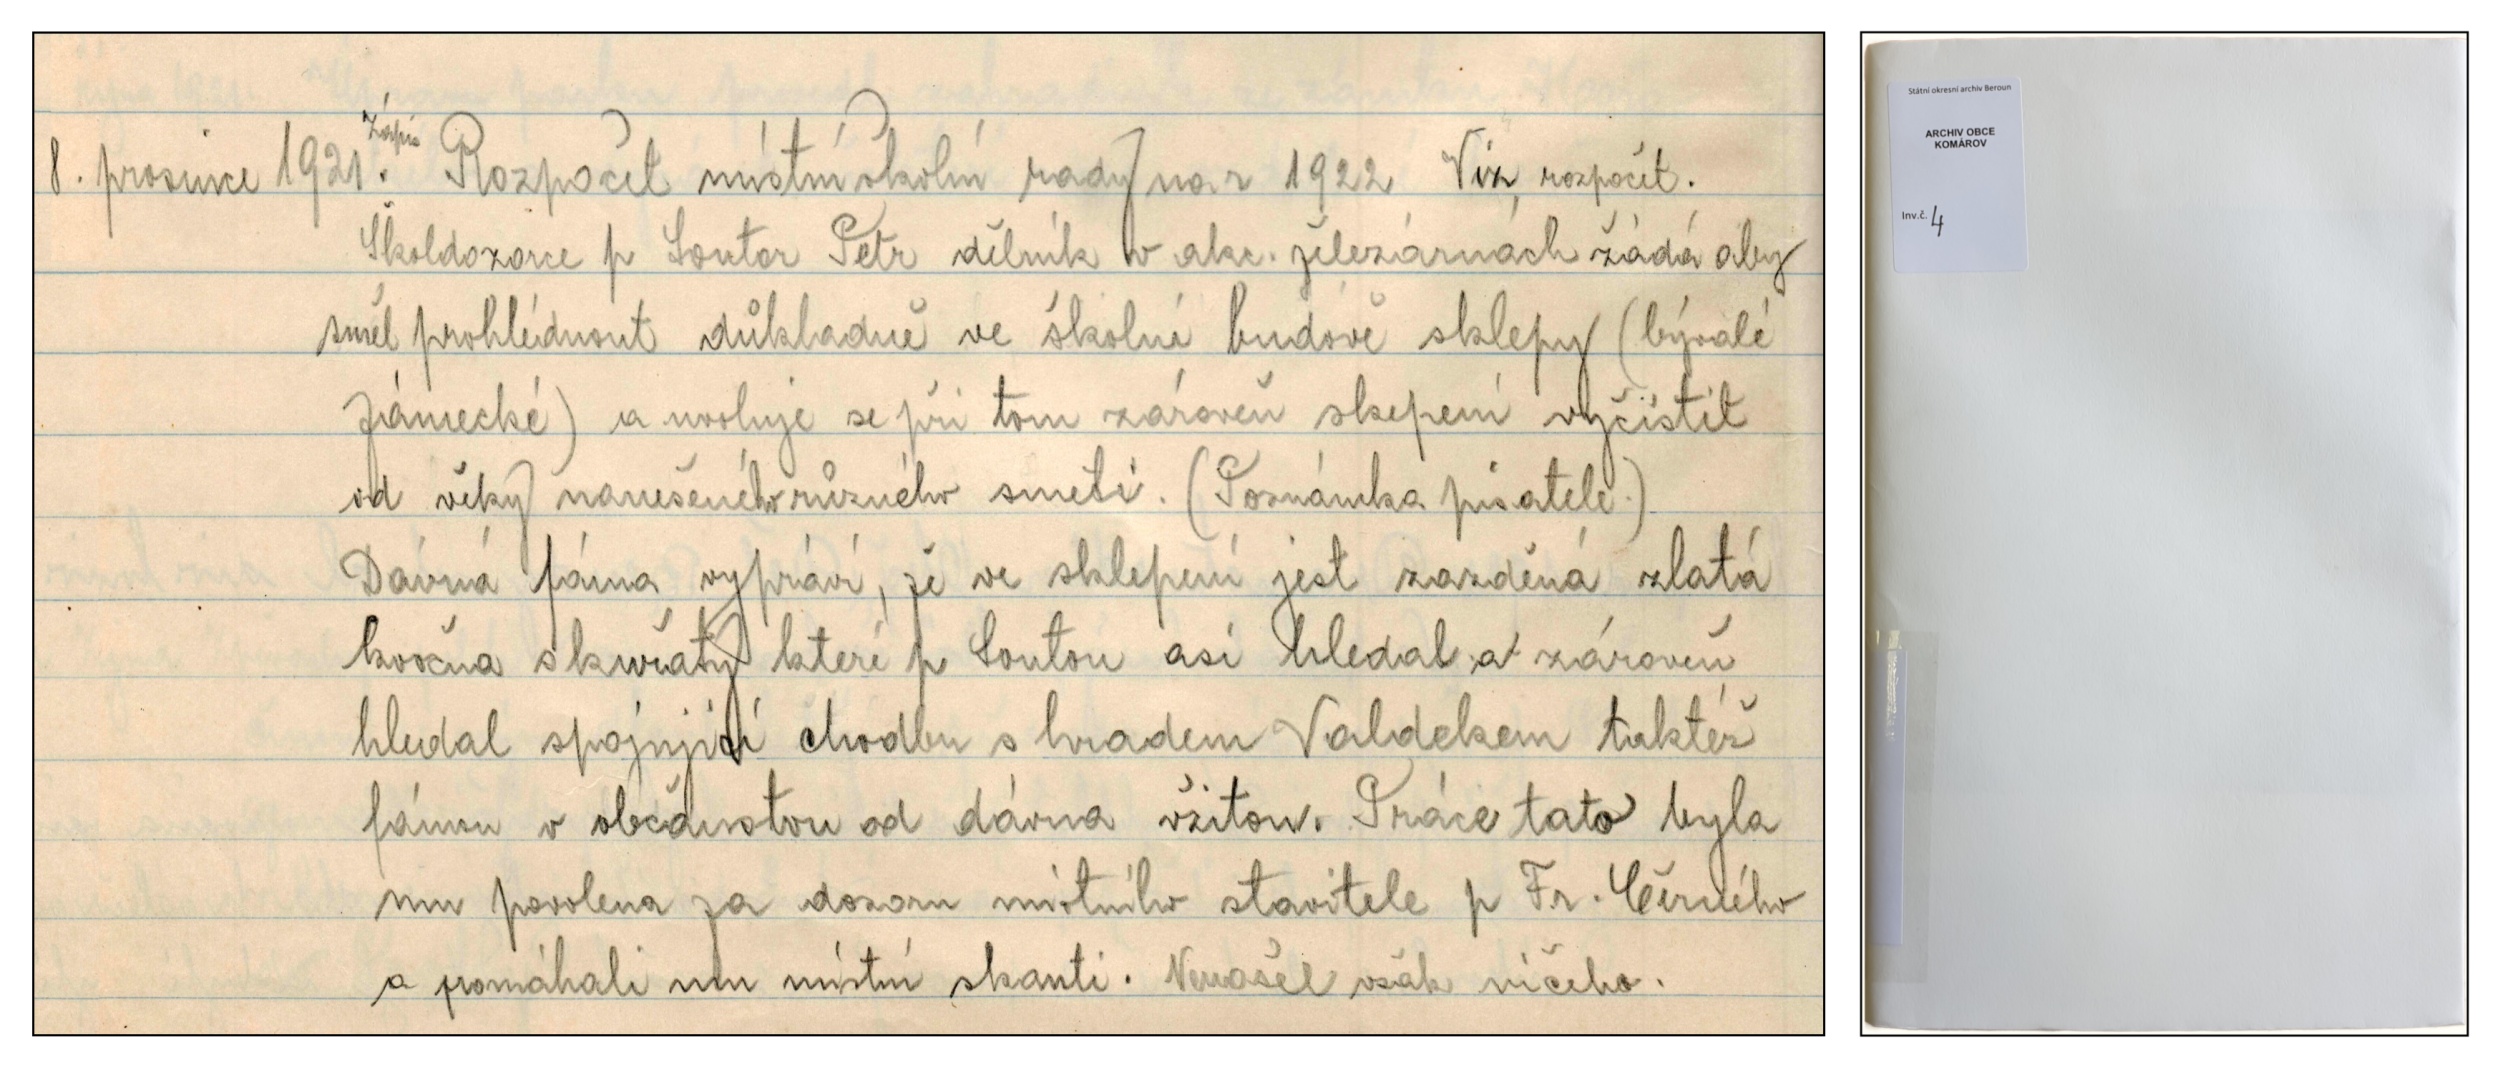 Zápis
8. prosince 1921. Rozpočet místní školní rady na r 1922 Viz rozpočet.
Školdozorce p Soutor Petr dělník v akc. železárnách žádá aby
směl prohlédnout důkladně ve školní budově sklepy (bývalé
zámecké) a uvoluje se při tom zároveň skepení vyčistit
od věky nanešeného různého smetí. (Poznámka pisatele.)
Dávná fáma vypráví, že ve sklepení jest zazděná zlatá
kvočna s kuřaty které p Soutou asi hledal a zároveň
hledal spojující chodbu s hradem Valdekem taktéž
fámou v občanstvu od dávna vžitou. Práce tato byla
mu povolena za dozoru místního stavitele p Fr. Černého
a pomáhali mu místní skauti. Nenašel však ničeho.
Státní okresní archiv Beroun
ARCHIV OBCE
KOMÁROV
Inv.č. 4